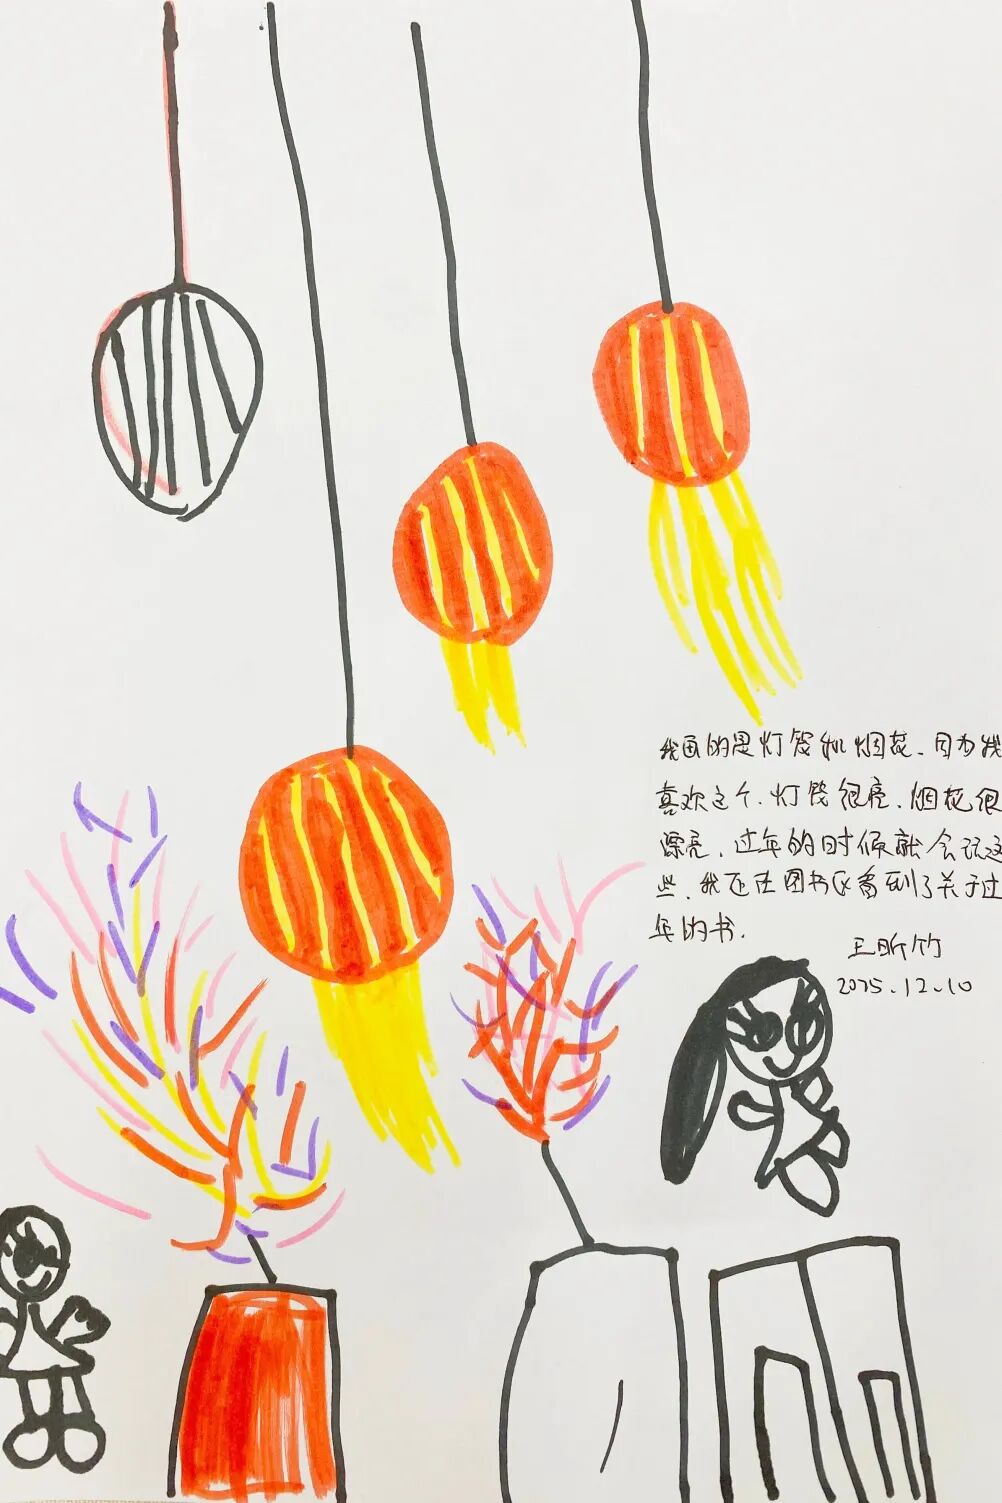 我画的是灯笼和烟花.因为我
喜欢这个.灯笼很亮.烟花很
漂亮.过年的时候就会玩这
些.我还在图书区看到了关于过
年的书.
王昕竹
2025.12.10